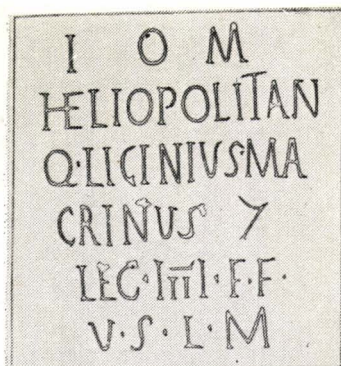 I O M
HELIOPOLITAN
Q·LICINIVSMA
CRINUS Y
LEG·IIII·F·F·
V·S·L·M